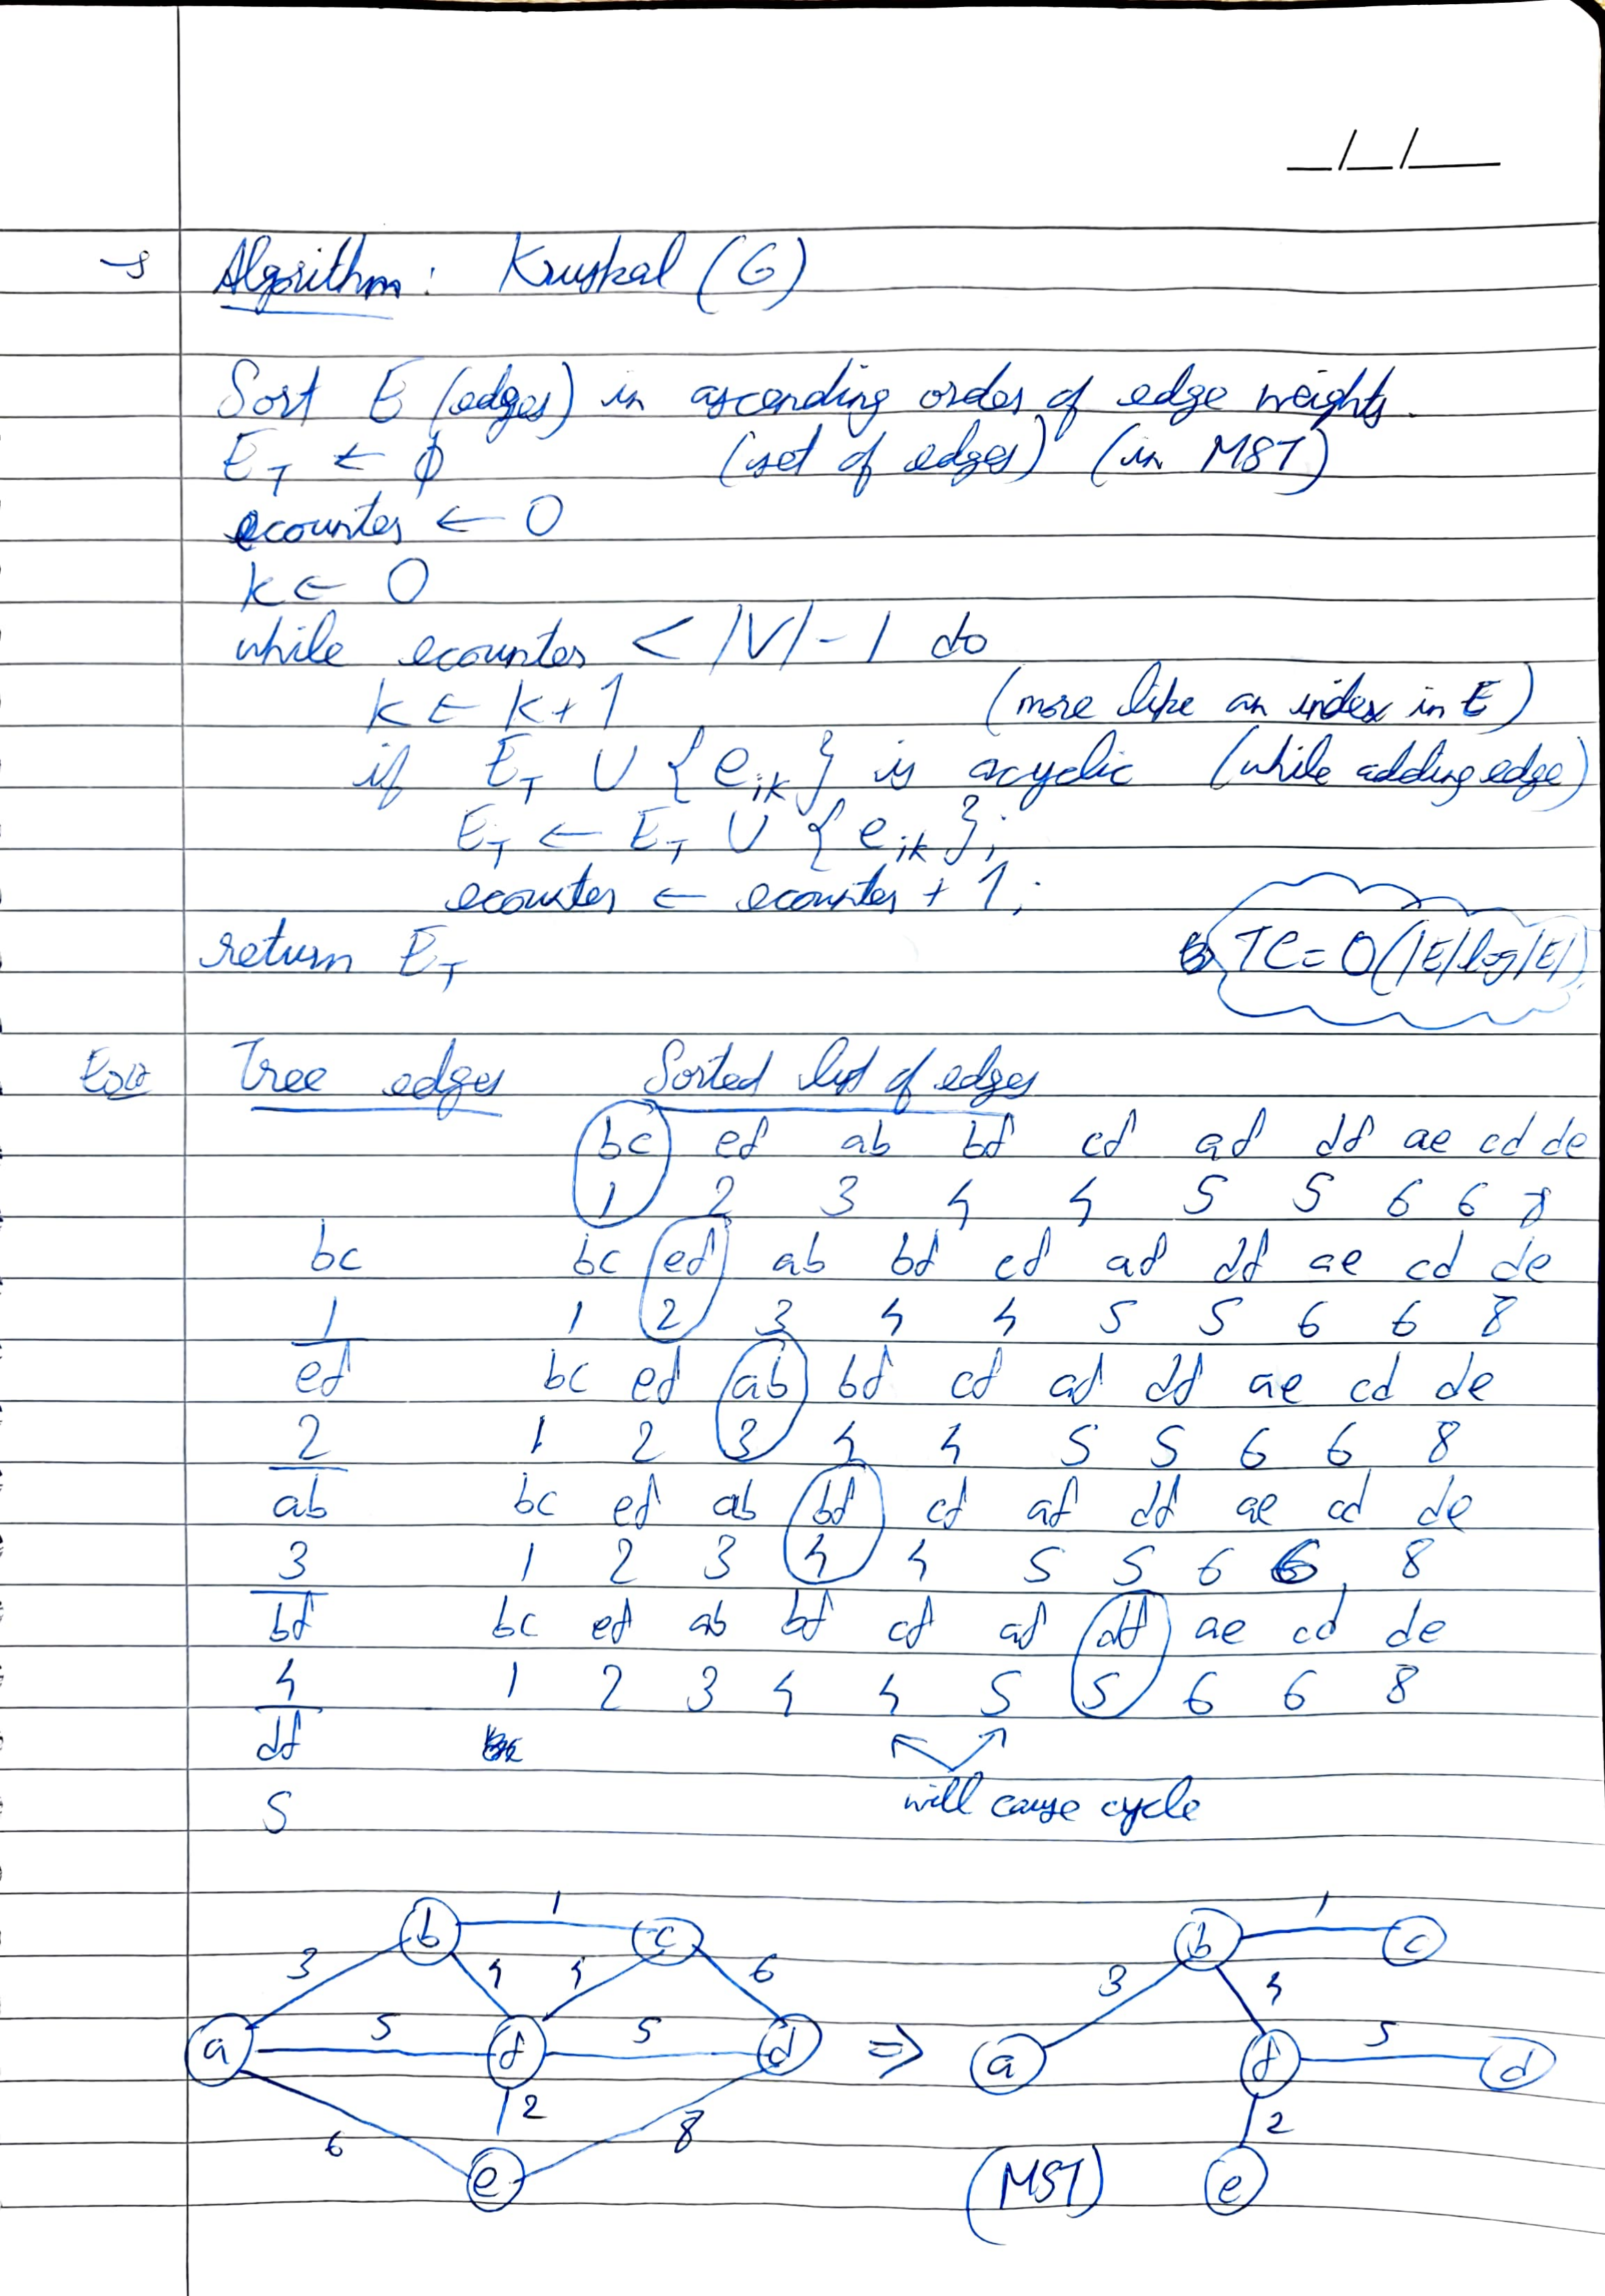 _/_/__
→ Algorithm: Kruskal (G)
Sort E (edges) in ascending order of edge weights.
E_T ← ϕ (set of edges) (in MST)
ecounter ← 0
k ← 0
while ecounter < |V| - 1 do
k ← k + 1 (more like an index in E)
if E_T ∪ {e_ik} is acyclic (while adding edge)
E_T ← E_T ∪ {e_ik};
ecounter ← ecounter + 1;
return E_T TC = O(|E|log|E|)
Tree edges Sorted list of edges
bc ef ab bf cf af df ae cd de
1 2 3 4 4 5 5 6 6 8
bc bc ef ab bf cf af df ae cd de
1 1 2 3 4 4 5 5 6 6 8
ef bc ef ab bf cf af df ae cd de
2 1 2 3 4 4 5 5 6 6 8
ab bc ef ab bf cf af df ae cd de
3 1 2 3 4 4 5 5 6 6 8
bf bc ef ab bf cf af df ae cd de
4 1 2 3 4 4 5 5 6 6 8
df
5 will cause cycle
b 1 c b 1 c
3 4 4 6 3 4
a 5 f 5 d ⇒ a f 5 d
6 2 8 2
e (MST) e